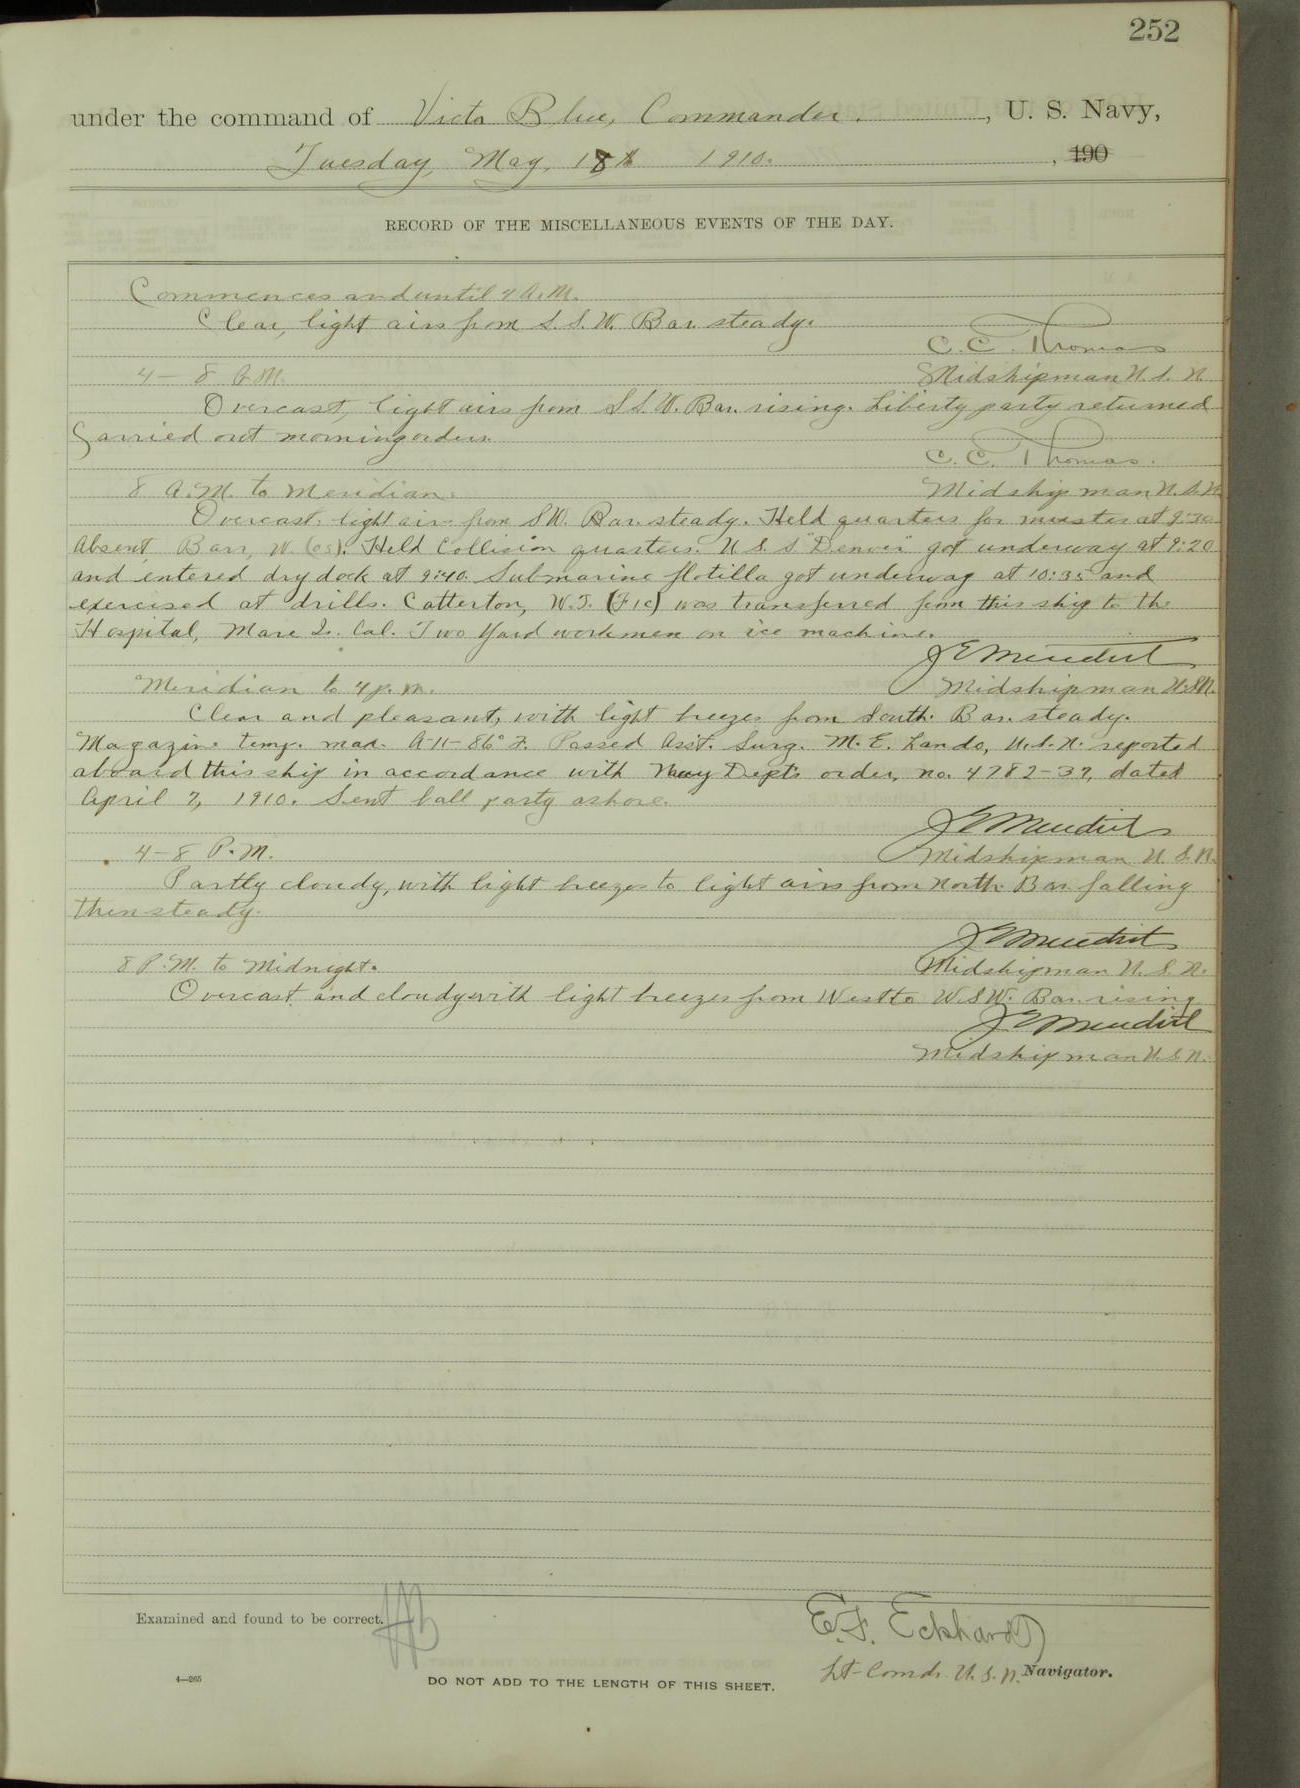 252
under the command of Victor Blue, Commander. , U. S. Navy,
Tuesday, May, 18th 1910. , 190
RECORD OF THE MISCELLANEOUS EVENTS OF THE DAY.
Commences and until 4 A.M.
Clear, light airs from S.S.W. Bar. steady.
C. C. Thomas
4 – 8 A.M.
Midshipman U.S.N.
Overcast, light airs from S.S.W. Bar. rising. Liberty party returned
Carried out morning orders.
C. C. Thomas.
8 A.M. to Meridian.
Midshipman U.S.N.
Overcast, light airs from SW. Bar. steady. Held quarters for muster at 9:30
Absent Barr, W. (os). Held Collision quarters. U.S.S "Denver" got underway at 9:20
and entered dry dock at 9:40. Submarine flotilla got underway at 10:35 and
exercised at drills. Catterton, W.T. (F1c) was transferred from this ship to the
Hospital, Mare Is. Cal. Two Yard workmen on ice machine.
Meridian to 4 p.m.
Midshipman U.S.N.
Clear and pleasant, with light breezes from South. Bar. steady.
Magazine temp. max. A-11-86° F. Passed Ass't. Surg. M. E. Lando, U.S.N. reported
aboard this ship in accordance with Navy Dept's order, no. 4782-37, dated
April 7, 1910. Sent ball party ashore.
4 – 8 P.M.
Midshipman U.S.N.
Partly cloudy, with light breezes to light airs from North. Bar. falling
then steady.
8 P.M. to Midnight.
Midshipman U.S.N.
Overcast and cloudy with light breezes from West to WSW. Bar. rising
Midshipman U.S.N.
Examined and found to be correct.
E. F. Eckhardt
Lt-Comdr. U.S.N. Navigator.
4—265
DO NOT ADD TO THE LENGTH OF THIS SHEET.